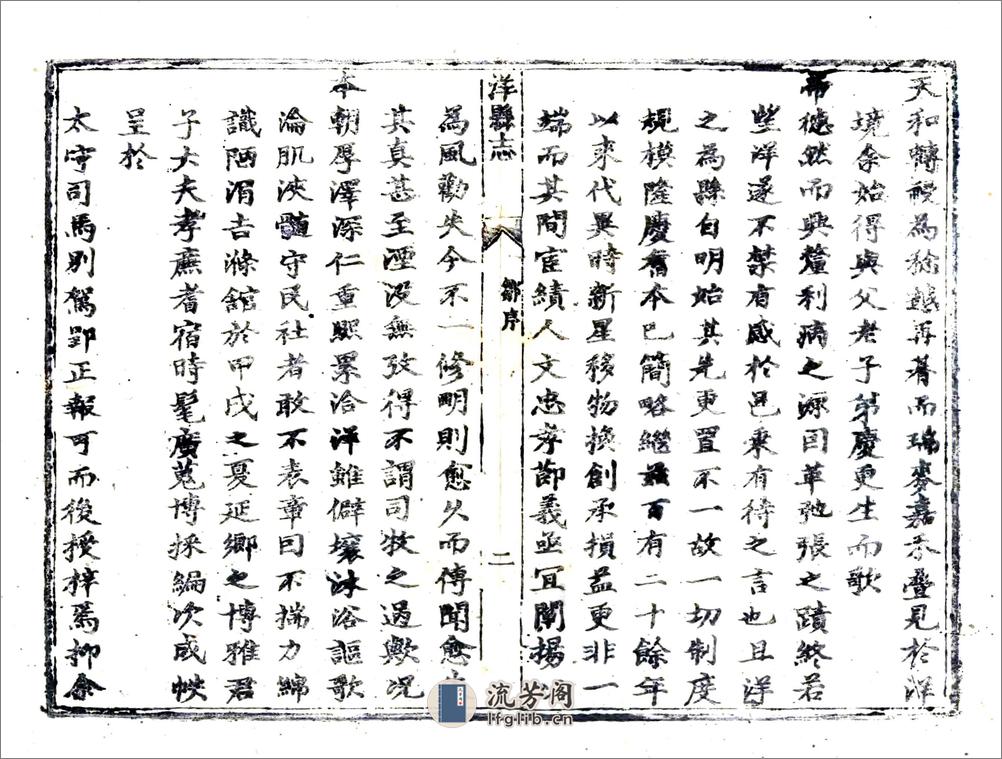 天和轉祲為稔越再著而瑞麥嘉禾疊見於洋
境余始得與父老子弟慶更生而歌
帝德然而興釐利病之源因革弛張之蹟終若
茫洋遂不禁有感於邑乘有待之言也且洋
之為縣自明始其先更置不一故一切制度
規模隆慶舊本已簡略繼茲百有二十餘年
以來代異時新星移物換創承損益更非一
端而其間宦績人文忠孝節義亟宜闡揚
洋縣志
鄒序
二
為風勸失今不一修明則愈久而傳聞愈
其真甚至湮沒無攷得不謂司牧之過歟況
本朝厚澤深仁重熙累洽洋雖僻壤沐浴謳歌
淪肌浹髓守民社者敢不表章因不揣力綿
識陋涓吉滌舘於甲戌之夏延鄉之博雅君
子大夫孝廉耆宿時髦廣蒐博採編次成帙
呈於
太守司馬別駕郢正報可而後授梓焉抑余
流芳阁
lfglib.cn